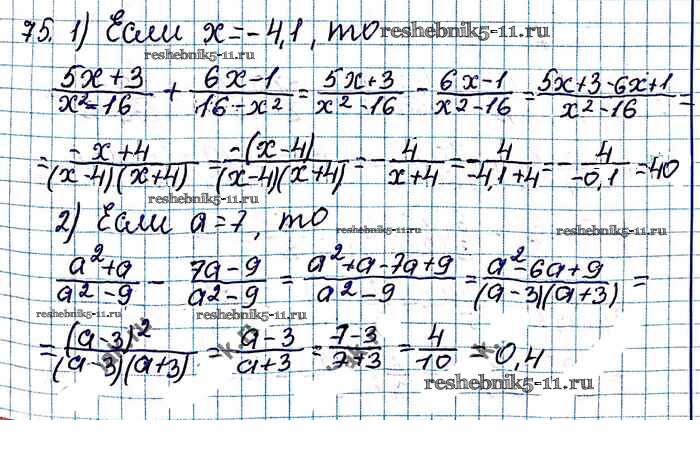 75. 1) Если x = -4,1, то reshebnik5-11.ru
reshebnik5-11.ru reshebnik5-11.ru reshebnik5-11.ru
(5x+3)/(x²-16) + (6x-1)/(16-x²) = (5x+3)/(x²-16) - (6x-1)/(x²-16) = (5x+3-6x+1)/(x²-16) =
= (-x+4)/((x-4)(x+4)) = (-(x-4))/((x-4)(x+4)) = -4/(x+4) = -4/(-4,1+4) = -4/(-0,1) = 40
reshebnik5-11.ru
2) Если a = 7, то reshebnik5-11.ru reshebnik5-11.ru
(a²+a)/(a²-9) - (7a-9)/(a²-9) = (a²+a-7a+9)/(a²-9) = (a²-6a+9)/((a-3)(a+3)) =
reshebnik5-11.ru reshebnik5-11.ru
= (a-3)²/((a-3)(a+3)) = (a-3)/(a+3) = (7-3)/(7+3) = 4/10 = 0,4
reshebnik5-11.ru